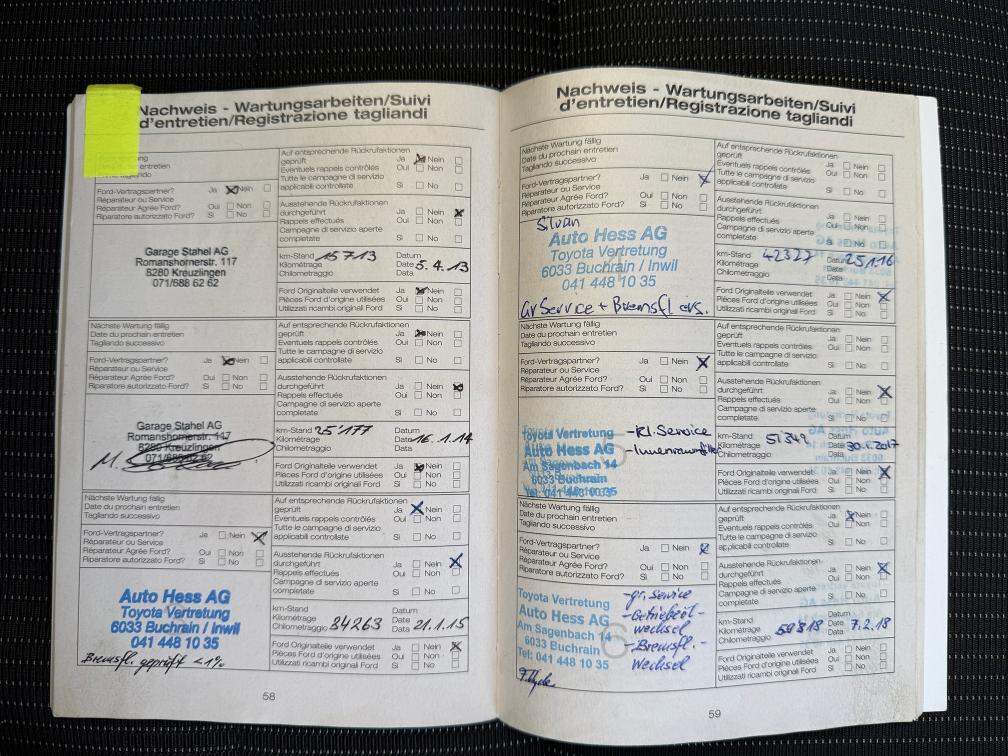 Nachweis - Wartungsarbeiten/Suivi
d'entretien/Registrazione tagliandi
Auf entsprechende Rückrufaktionen
geprüft Ja Nein
Eventuels rappels contrôlés Oui Non
Tutte le campagne di servizio
applicabili controllate Si No
Ford-Vertragspartner? Ja Nein
Réparateur ou Service
Réparateur Agréé Ford? Oui Non
Riparatore autorizzato Ford? Si No
Ausstehende Rückrufaktionen
durchgeführt Ja Nein
Rappels effectués Oui Non
Campagne di servizio aperte
completate Si No
Garage Stahel AG
Romanshornerstr. 117
8280 Kreuzlingen
071/688 62 62
km-Stand 15713 Datum
Kilométrage Date 5.4.13
Chilometraggio Data
Ford Originalteile verwendet Ja Nein
Pièces Ford d'origine utilisées Oui Non
Utilizzati ricambi originali Ford Si No
Nächste Wartung fällig
Date du prochain entretien
Tagliando successivo
Auf entsprechende Rückrufaktionen
geprüft Ja Nein
Eventuels rappels contrôlés Oui Non
Tutte le campagne di servizio
applicabili controllate Si No
Ford-Vertragspartner? Ja Nein
Réparateur ou Service
Réparateur Agréé Ford? Oui Non
Riparatore autorizzato Ford? Si No
Ausstehende Rückrufaktionen
durchgeführt Ja Nein
Rappels effectués Oui Non
Campagne di servizio aperte
completate Si No
Garage Stahel AG
Romanshornerstr. 117
8280 Kreuzlingen
071/688 62 62
km-Stand 25'177 Datum
Kilométrage Date 16.1.14
Chilometraggio Data
Ford Originalteile verwendet Ja Nein
Pièces Ford d'origine utilisées Oui Non
Utilizzati ricambi originali Ford Si No
Nächste Wartung fällig
Date du prochain entretien
Tagliando successivo
Auf entsprechende Rückrufaktionen
geprüft Ja Nein
Eventuels rappels contrôlés Oui Non
Tutte le campagne di servizio
applicabili controllate Si No
Ford-Vertragspartner? Ja Nein
Réparateur ou Service
Réparateur Agréé Ford? Oui Non
Riparatore autorizzato Ford? Si No
Ausstehende Rückrufaktionen
durchgeführt Ja Nein
Rappels effectués Oui Non
Campagne di servizio aperte
completate Si No
Auto Hess AG
Toyota Vertretung
6033 Buchrain / Inwil
041 448 10 35
Bremsfl. geprüft <1%
km-Stand Datum
Kilométrage 34263 Date 21.1.15
Chilometraggio Data
Ford Originalteile verwendet Ja Nein
Pièces Ford d'origine utilisées Oui Non
Utilizzati ricambi originali Ford Si No
58
Nachweis - Wartungsarbeiten/Suivi
d'entretien/Registrazione tagliandi
Nächste Wartung fällig
Date du prochain entretien
Tagliando successivo
Auf entsprechende Rückrufaktionen
geprüft Ja Nein
Eventuels rappels contrôlés Oui Non
Tutte le campagne di servizio
applicabili controllate Si No
Ford-Vertragspartner? Ja Nein
Réparateur ou Service
Réparateur Agréé Ford? Oui Non
Riparatore autorizzato Ford? Si No
Ausstehende Rückrufaktionen
durchgeführt Ja Nein
Rappels effectués Oui Non
Campagne di servizio aperte
completate Si No
Silvan
Auto Hess AG
Toyota Vertretung
6033 Buchrain / Inwil
041 448 10 35
Gr Service + Bremsfl ers.
km-Stand 42327 Datum 25.1.16
Kilométrage Date
Chilometraggio Data
Ford Originalteile verwendet Ja Nein
Pièces Ford d'origine utilisées Oui Non
Utilizzati ricambi originali Ford Si No
Nächste Wartung fällig
Date du prochain entretien
Tagliando successivo
Auf entsprechende Rückrufaktionen
geprüft Ja Nein
Eventuels rappels contrôlés Oui Non
Tutte le campagne di servizio
applicabili controllate Si No
Ford-Vertragspartner? Ja Nein
Réparateur ou Service
Réparateur Agréé Ford? Oui Non
Riparatore autorizzato Ford? Si No
Ausstehende Rückrufaktionen
durchgeführt Ja Nein
Rappels effectués Oui Non
Campagne di servizio aperte
completate Si No
Toyota Vertretung
Auto Hess AG
Am Sagenbach 14
6033 Buchrain
Tel: 041 448 10 35
-Kl. Service
-Innenraumfilter
km-Stand 51349 Datum
Kilométrage Date
Chilometraggio Data
Ford Originalteile verwendet Ja Nein
Pièces Ford d'origine utilisées Oui Non
Utilizzati ricambi originali Ford Si No
Nächste Wartung fällig
Date du prochain entretien
Tagliando successivo
Auf entsprechende Rückrufaktionen
geprüft Ja Nein
Eventuels rappels contrôlés Oui Non
Tutte le campagne di servizio
applicabili controllate Si No
Ford-Vertragspartner? Ja Nein
Réparateur ou Service
Réparateur Agréé Ford? Oui Non
Riparatore autorizzato Ford? Si No
Ausstehende Rückrufaktionen
durchgeführt Ja Nein
Rappels effectués Oui Non
Campagne di servizio aperte
completate Si No
Toyota Vertretung
Auto Hess AG
Am Sagenbach 14
6033 Buchrain
Tel: 041 448 10 35
-gr. Service
-Getriebeöl-
wechsel
-Bremsfl.-
Wechsel
km-Stand Datum
Kilométrage 59818 Date 7.2.18
Chilometraggio Data
Ford Originalteile verwendet Ja Nein
Pièces Ford d'origine utilisées Oui Non
Utilizzati ricambi originali Ford Si No
59